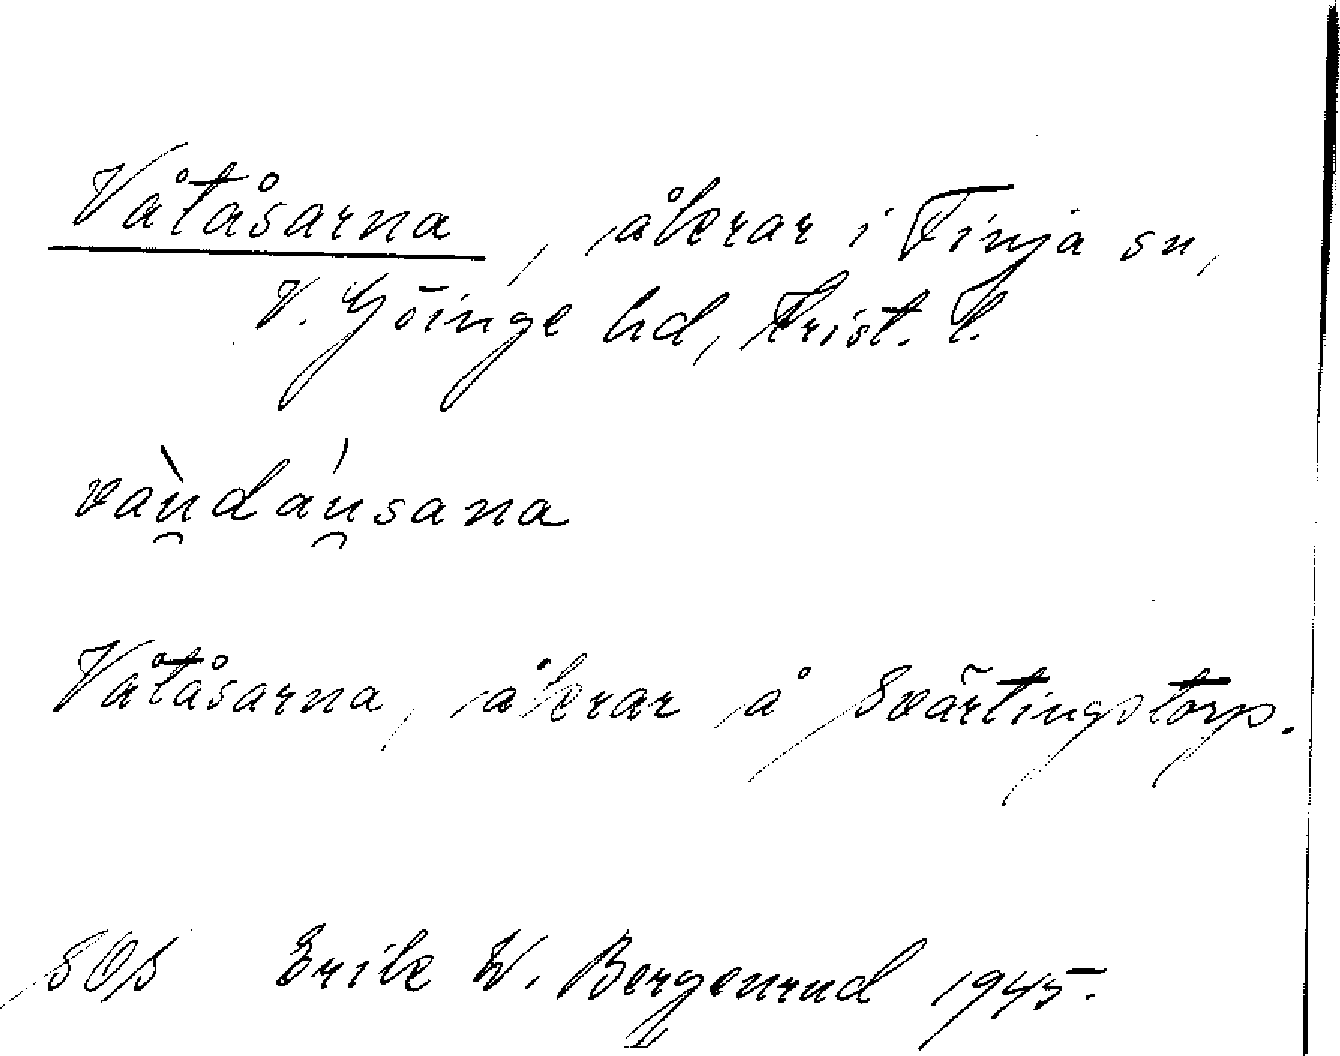 Våtåsarna, åkrar i Finja sn,
V. Göinge hd, Krist. l.
vàu̯dáu̯sana
Våtåsarna, åkrar å Svärtingstorp.
SOS Erik W. Bergenrud 1945.